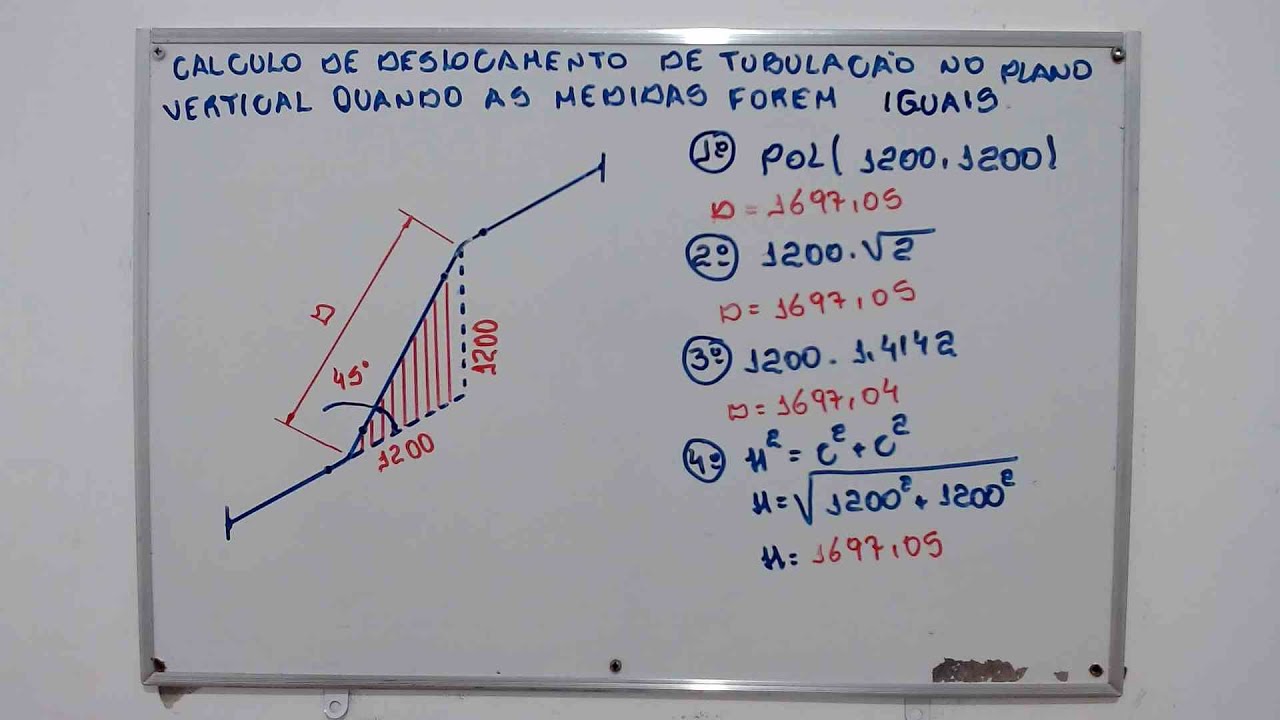 CALCULO DE DESLOCAMENTO DE TUBULAÇÃO NO PLANO
VERTICAL QUANDO AS MEDIDAS FOREM IGUAIS.
1º POL( 1200,1200)
D = 1697,05
2º 1200.√2
D = 1697,05
3º 1200 . 1,4142
D = 1697,04
4º H² = C² + C²
H=√1200² + 1200²
H= 1697,05
D
45°
1200
1200